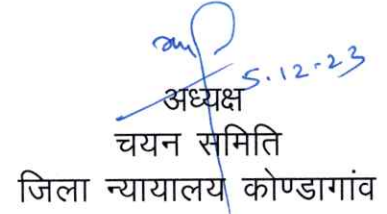 5.12-23
अध्यक्ष
चयन समिति
जिला न्यायालय कोण्डागांव